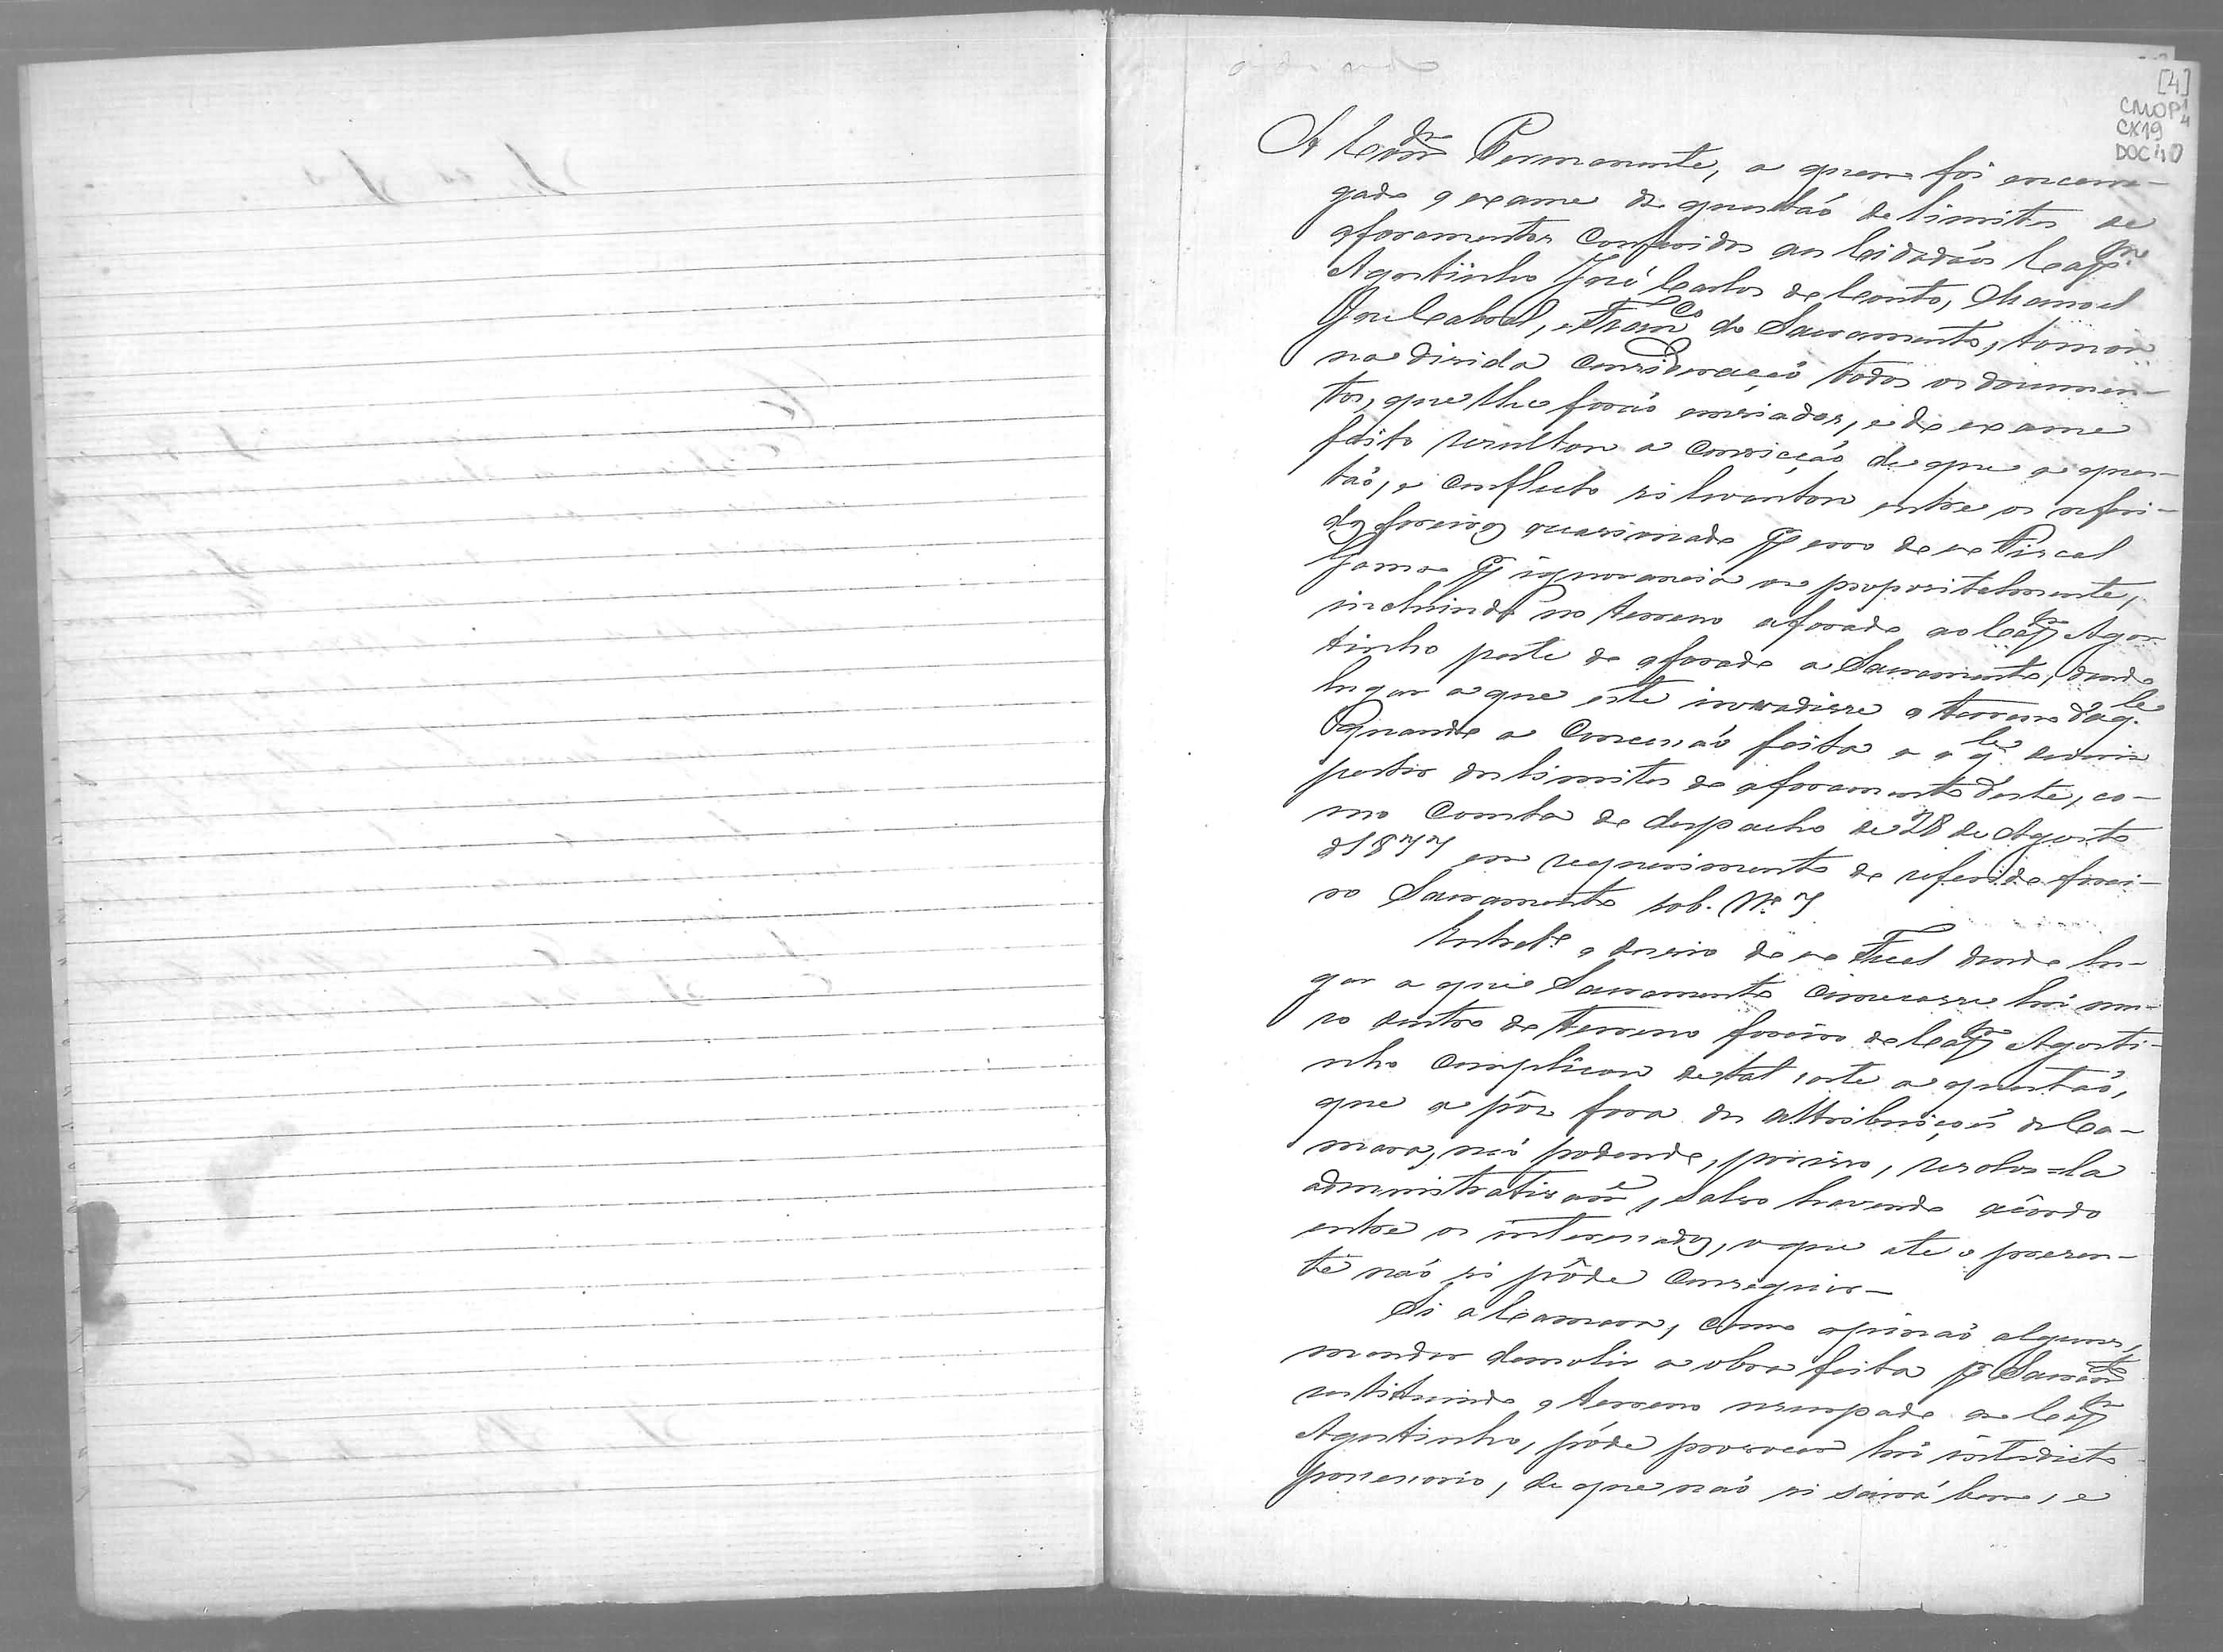 [4]
CMOP
CX19
DOC 40
A Comm Permanente, a quem foi encarre-
gado o exame da questão de limites de
aforamentos conferidos aos Cidadãos Capm
Agostinho José Carlos do Couto, Manoel
José Cabral, e Franco do Sacramento, tomou
na divida consideração todos os documen-
tos, que lhe forão enviados, e do exame
feito resultou a convicção de que a ques-
tão, e conflicto si levantou entre os referi-
dos foreiros occasionado p erro do ex Fiscal
Gama p ignorancia ou propositalmente,
incluindo no terreno aforado ao Capm Agos-
tinho parte do aforado a Sacramento, dando
lugar a que este invadisse o terreno d'aqle
quando a concessão feita a aqle deveria
partir dos limites do aforamento deste, co-
mo consta do despacho de 28 de Agosto
d 1877 em requerimento do referido forei-
ro Sacramento sob. No 7
Entrete o desvio do ex Fiscal dando lu-
gar a que Sacramento começasse hum mu-
ro dentro do terreno foreiro do Capm Agosti-
nho complicou de tal sorte a questão,
que a pôz fora das attribuições da Ca-
mara, não podendo, por isso, resolvel-a
administrativame, salvo havendo acôrdo
entre os interessados, o que até o presen-
te não si pôde conseguir_
Si a Camara, como opinão alguns,
mandar demolir a obra feita p Sacramto
restituindo o terreno usurpado ao Capm
Agostinho, póde provocar hum interdicto
possessorio, de que não si sairá bem, e